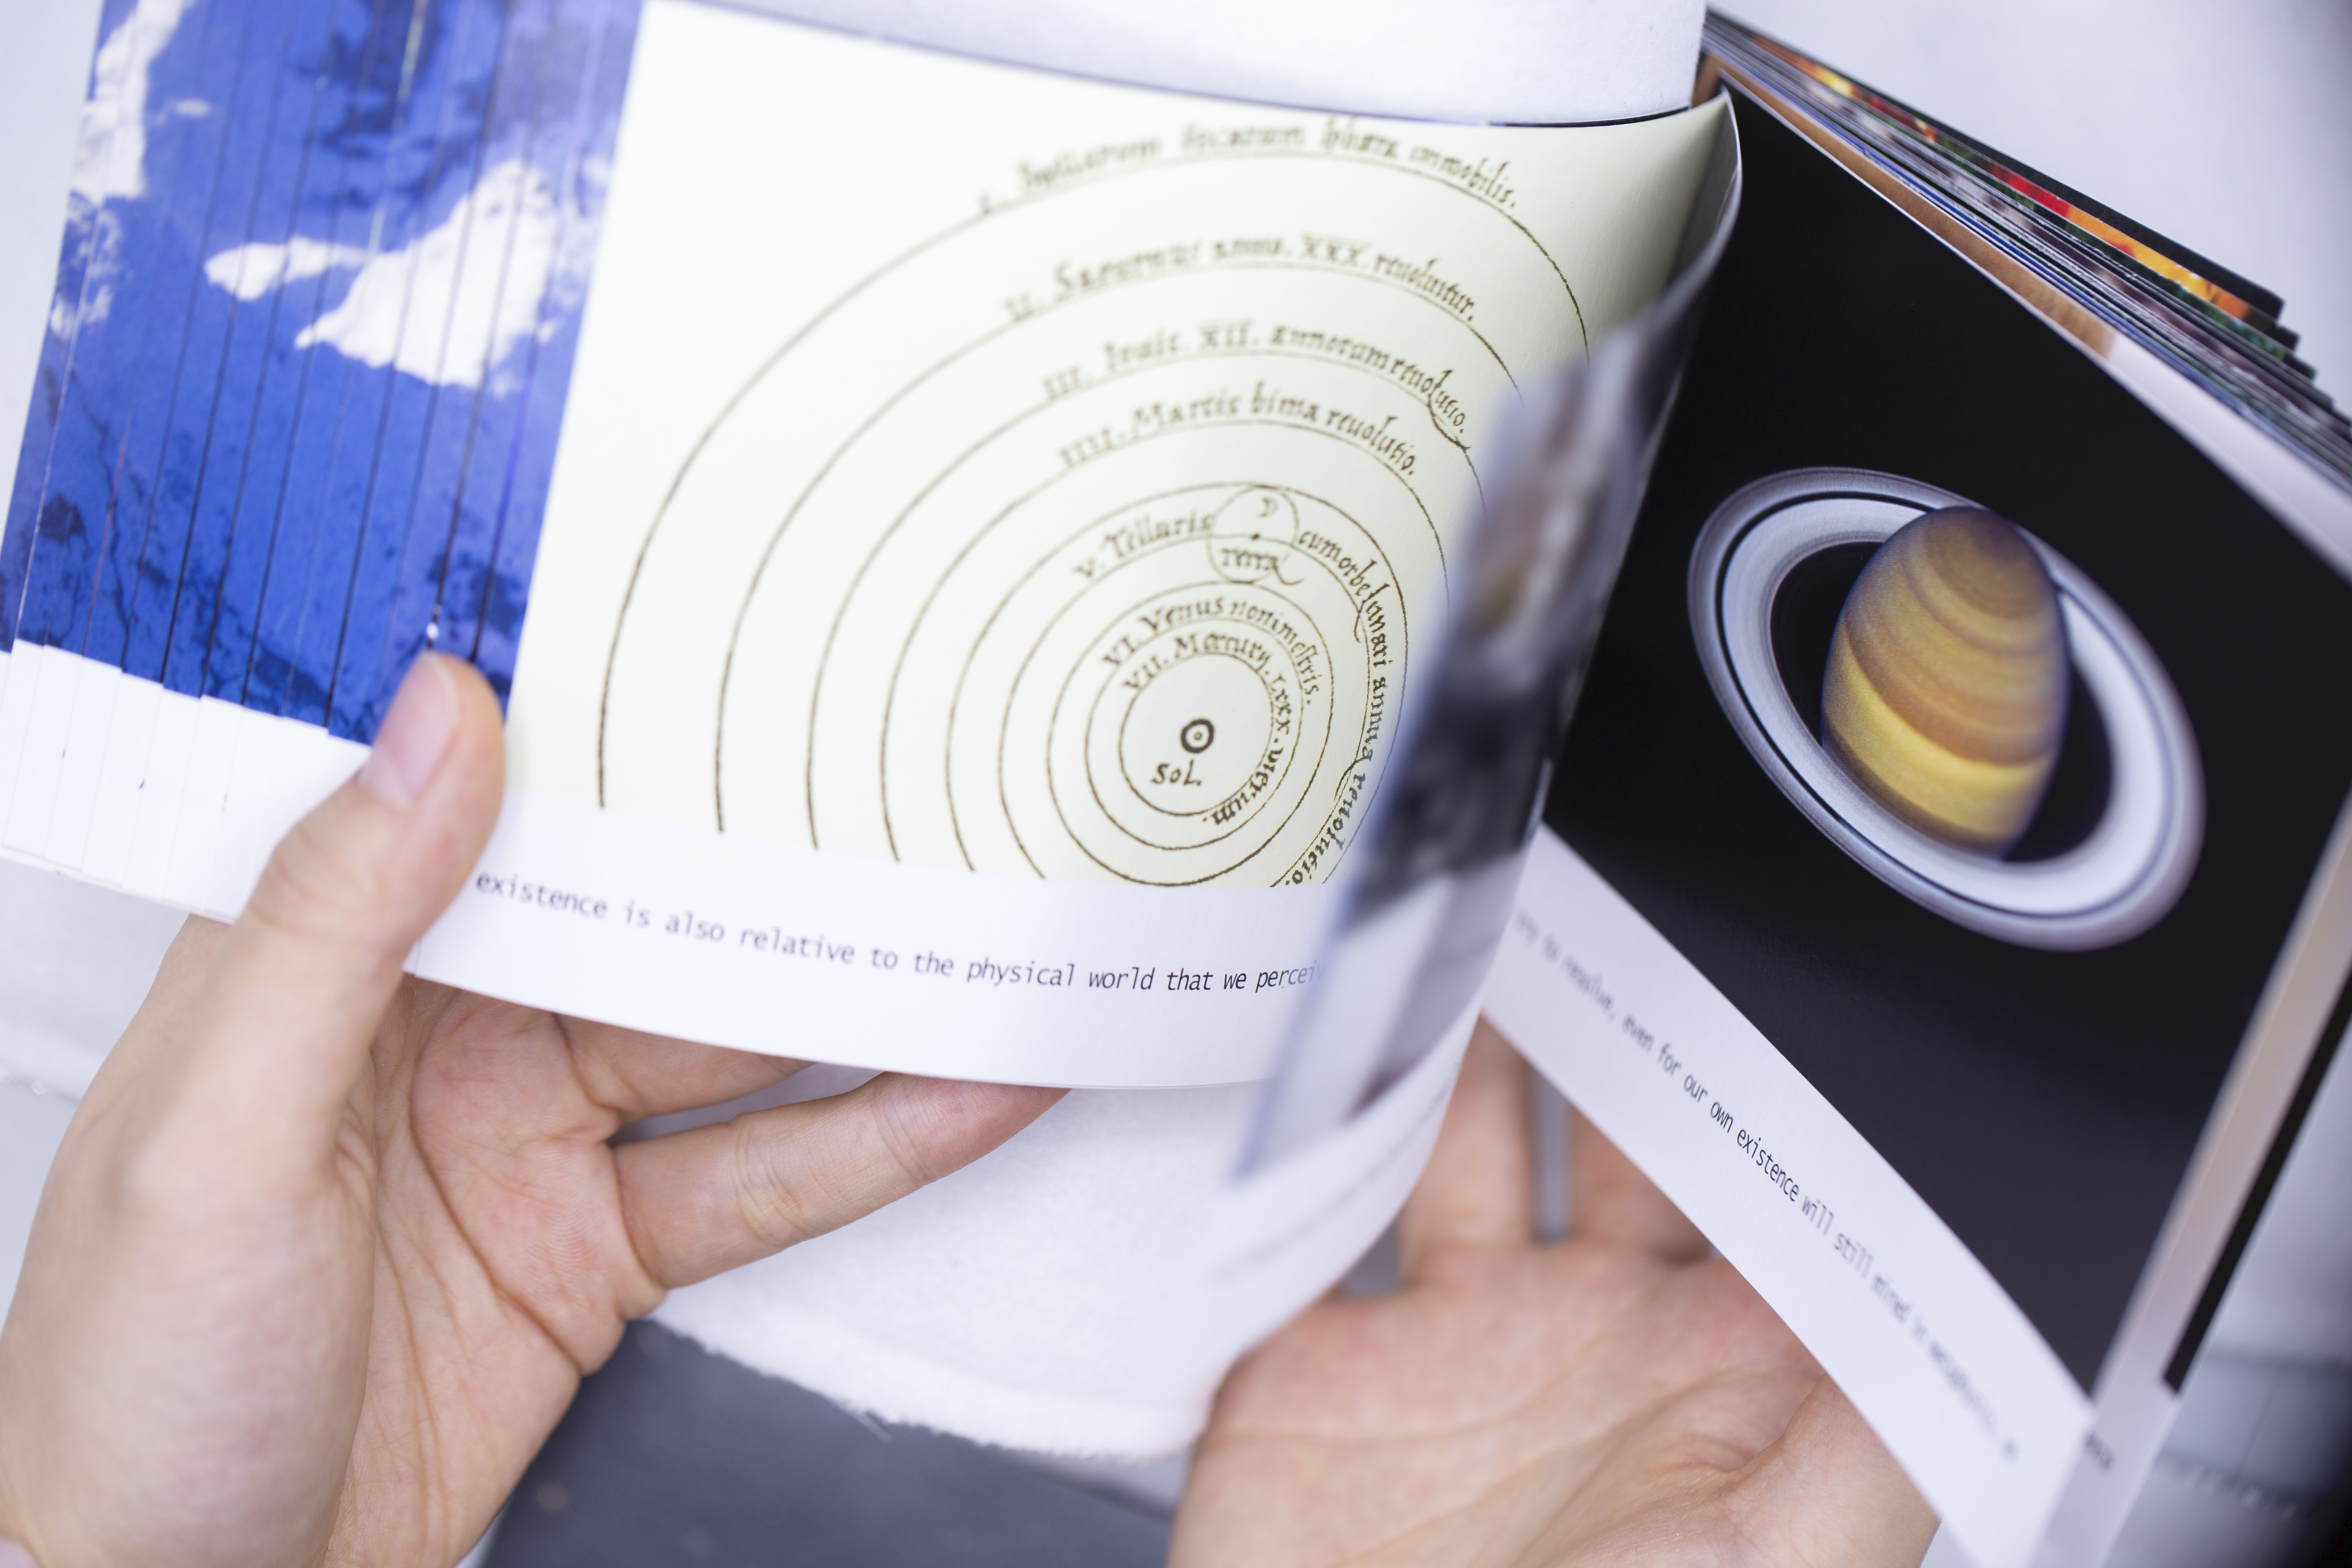 I. Stellarum fixarum sphæra immobilis.
II. Saturnus anno. XXX revoluitur.
III. Iovis XII. annorum revolutio.
IIII. Martis bima revolutio.
V. Telluris cum orbe lunari annua revolutio.
Terra
VI. Venus nonimestris.
VII. Mercurii LXXX. dierum.
Sol
existence is also relative to the physical world that we
even for our own existence will still